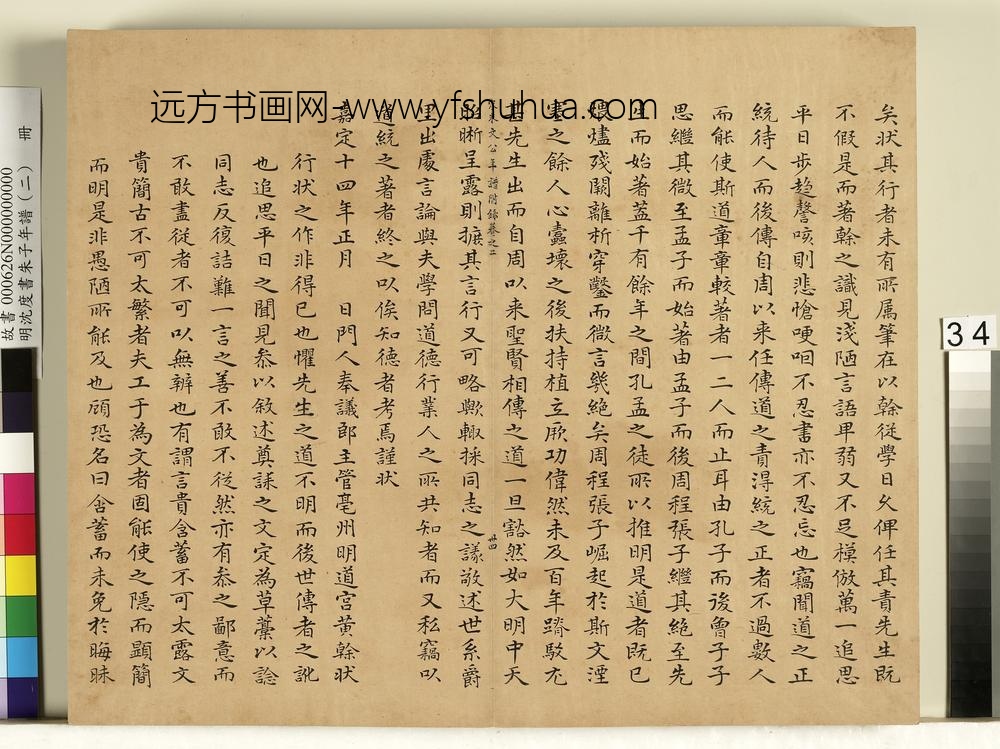 矣狀其行者未有所属筆在以榦從學日久俾任其責先生既
不假是而著榦之識見淺陋言語卑弱又不足模倣萬一追思
平日步趨謦咳則悲愴哽咽不忍書亦不忍忘也竊聞道之正
統待人而後傳自周以来任傳道之責淂統之正者不過數人
而能使斯道章章較著者一二人而止耳由孔子而後曾子子
思繼其微至孟子而始著由孟子而後周程張子繼其絕至先
生而始著盖千有餘年之間孔孟之徒所以推明是道者既已
煨燼殘闕離析穿鑿而微言幾絕矣周程張子崛起於斯文湮
塞之餘人心蠹壞之後扶持植立厥功偉然未及百年踳駁尤
甚先生出而自周以来聖賢相傳之道一旦豁然如大明中天
朱文公年譜附錄卷之二
卅四
昭晰呈露則摭其言行又可略歟輙採同志之議敬述世系爵
里出處言論與夫學問道德行業人之所共知者而又私竊以
道統之著者終之以俟知德者考焉謹狀
嘉定十四年正月 日門人奉議郎主管亳州明道宮黄榦狀
行狀之作非得已也懼先生之道不明而後世傳者之訛
也追思平日之聞見叅以敘述奠誄之文定為草藁以諗
同志反復詰難一言之善不敢不從然亦有叅之鄙意而
不敢盡從者不可以無辨也有謂言貴含蓄不可太露文
貴簡古不可太繁者夫工于為文者固能使之隱而顕簡
而明是非愚陋所能及也顧恐名曰含蓄而未免於晦昧
远方书画网-www.yfshuhua.com
故書000626N000000000
明沈度書朱子年譜(二) 冊
34